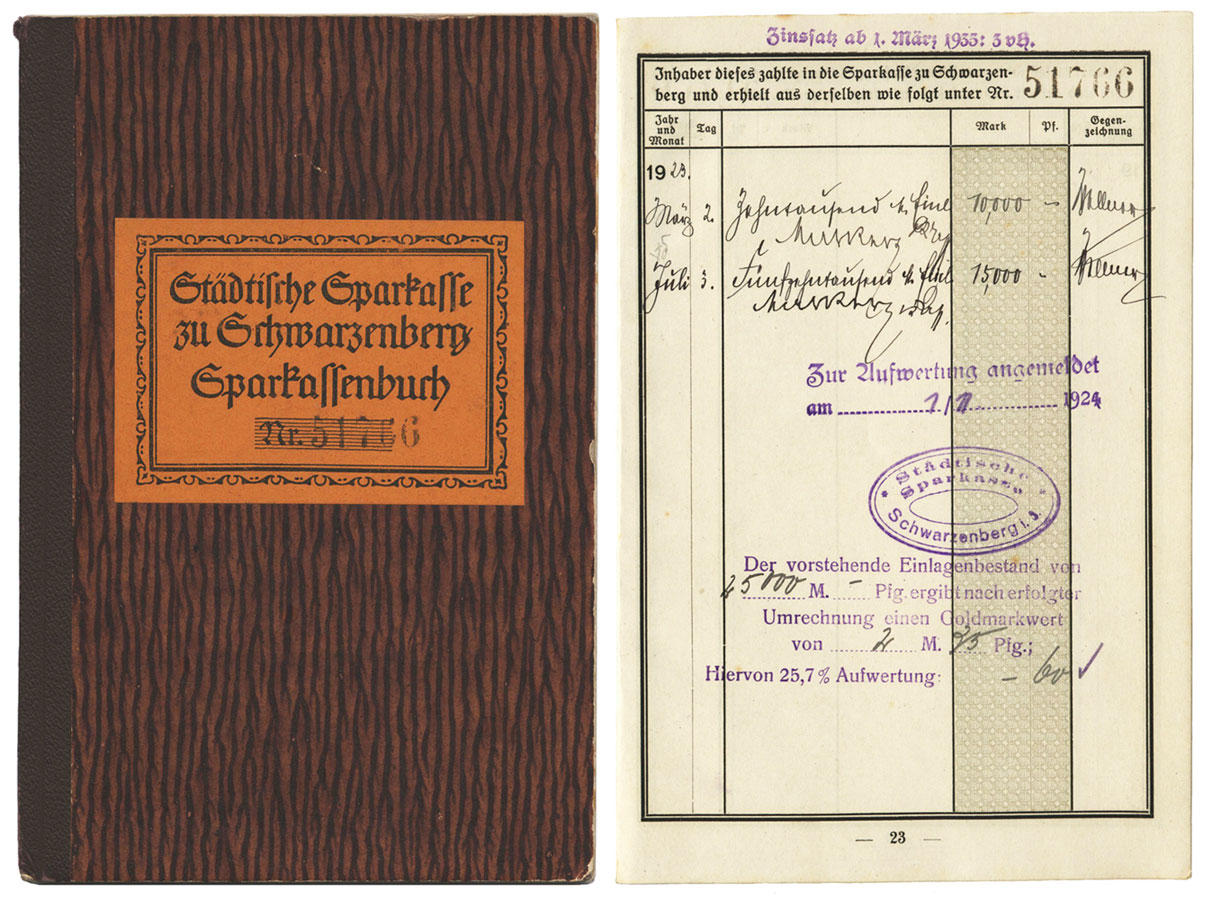 Städtische Sparkasse
zu Schwarzenberg
Sparkassenbuch
Nr. 51766
Zinssatz ab 1. März 1933: 3 vH.
Inhaber dieses zahlte in die Sparkasse zu Schwarzen-
berg und erhielt aus derselben wie folgt unter Nr. 51766
Jahr
und
Monat
Tag
Mark
Pf.
Gegen-
zeichnung
1923.
März 2. Zehntausend 10,000 –
Juli 3. Fünfzehntausend 15,000 –
Zur Aufwertung angemeldet
am 1924
Städtische
Sparkasse
Schwarzenberg i. S.
Der vorstehende Einlagenbestand von
25000 M. – Pfg. ergibt nach erfolgter
Umrechnung einen Goldmarkwert
von 2 M. 35 Pfg.;
Hiervon 25,7% Aufwertung: – 60 ✓
— 23 —